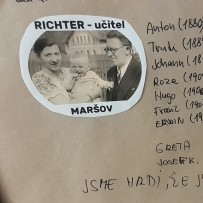 RICHTER - učitel
MARŠOV
Anton (188
Trudi (188
Johann (18
Roza (190
Hugo (190
Franz (19
ERWIN (19
GRETA
JOSEF K.
JSME HRDÍ, ŽE J